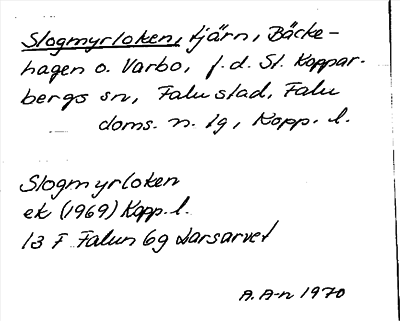 Slogmyrloken, tjärn, Bäcke-
hagen o. Varbo, f.d. St. Koppar-
bergs sn, Falu stad, Falu
doms. n. lg, Kopp. l.
Slogmyrloken
ek (1969) Kopp. l.
13 F Falun 6g Larsarvet
A. A-n 1970